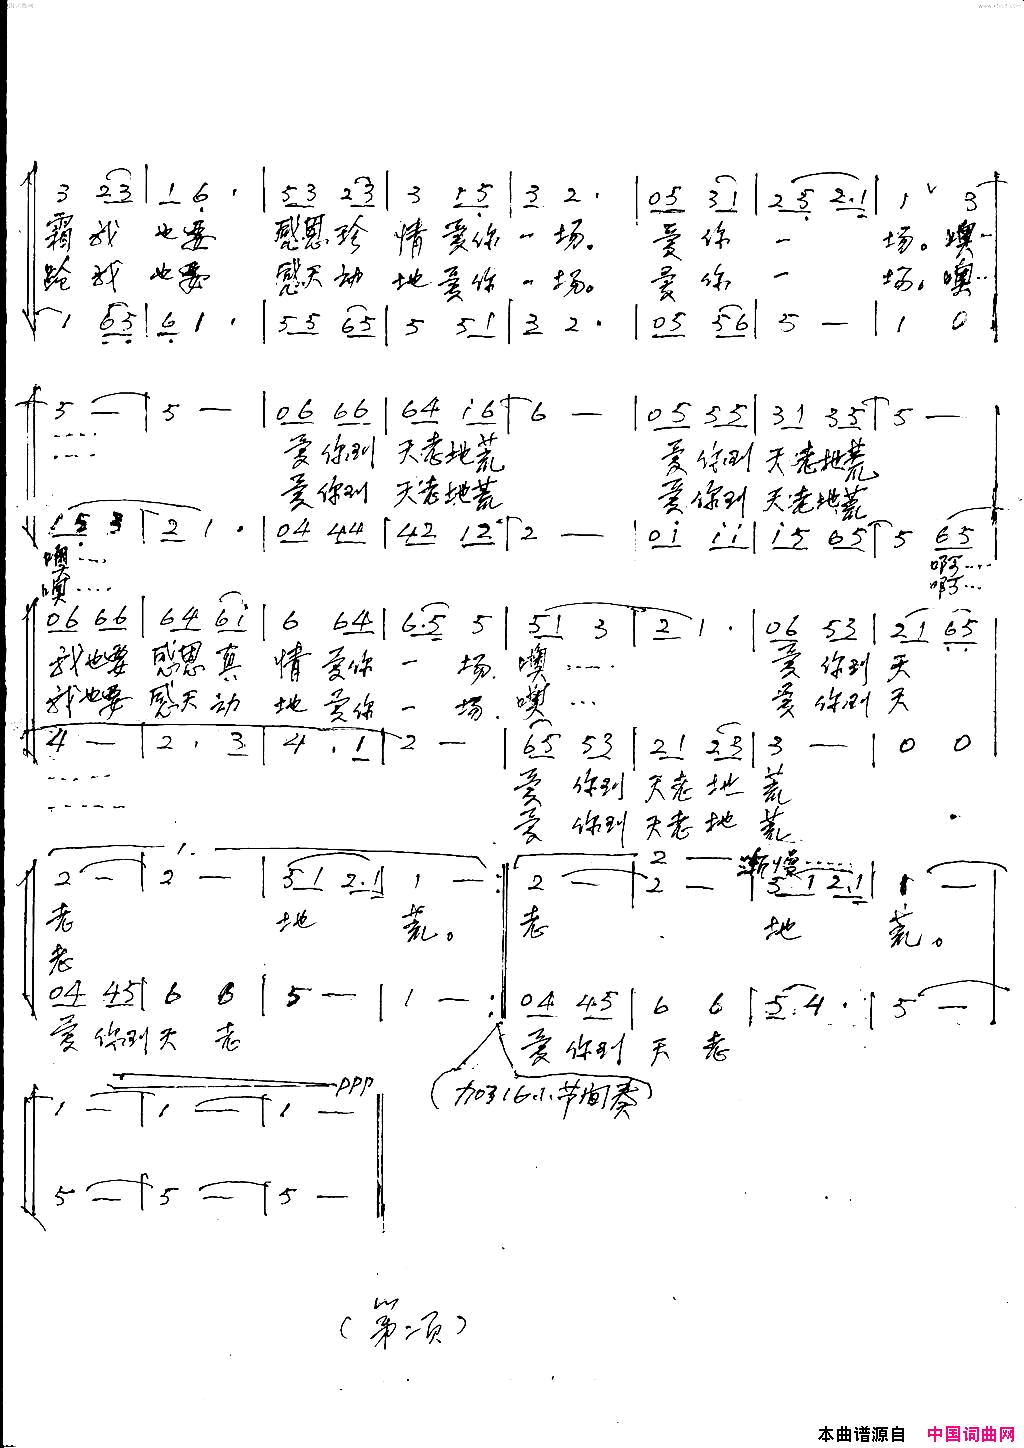 3 23 | 1 6 · | 53 23 | 3 15 | 3 2 · | 05 31 | 25 2·1 | 1 ∨ 3
霜我 也要 感恩珍 情爱你一场。 爱你 一 场。噢…
跄我 也要 感天动 地爱你一场。 爱你 一 场。噢…
1 65 | 6 1 · | 55 65 | 5 51 | 3 2 · | 05 56 | 5 — | 1 0
5 — | 5 — | 06 66 | 64 i6 | 6 — | 05 55 | 31 35 | 5 —
爱你到 天老地荒 爱你到 天老地荒
爱你到 天老地荒 爱你到 天老地荒
153 | 2 1 · | 04 44 | 42 12 | 2 — | 0i ii | i5 65 | 5 65
噢…… 啊……
噢…… 啊…
06 66 | 64 6i | 6 64 | 6·5 5 | 51 3 | 2 1 · | 06 53 | 21 65
我也要 感恩真 情 爱你 一 场. 噢…… 爱 你到 天
我也要 感天动 地 爱你 一 场. 噢… 爱你到 天
4 — | 2 · 3 | 4 · 1 | 2 — | 65 53 | 21 23 | 3 — | 0 0
爱 你到 天老 地 荒
爱 你到 天老 地 荒
1. 2 — 渐慢……
2 — | 2 — | 31 2·1 | 1 — : 2 — | 2 — | 51 2·1 | 1 —
老 地 荒。 老 地 荒。
老
04 45 | 6 6 | 5 — | 1 — : 04 45 | 6 6 | 5·4 · | 5 —
爱 你到 天 老 爱 你到 天 老
(加316小节间奏)
ppp
1 — | 1 — | 1 —
5 — | 5 — | 5 —
(第二页)
本曲谱源自 中国词曲网